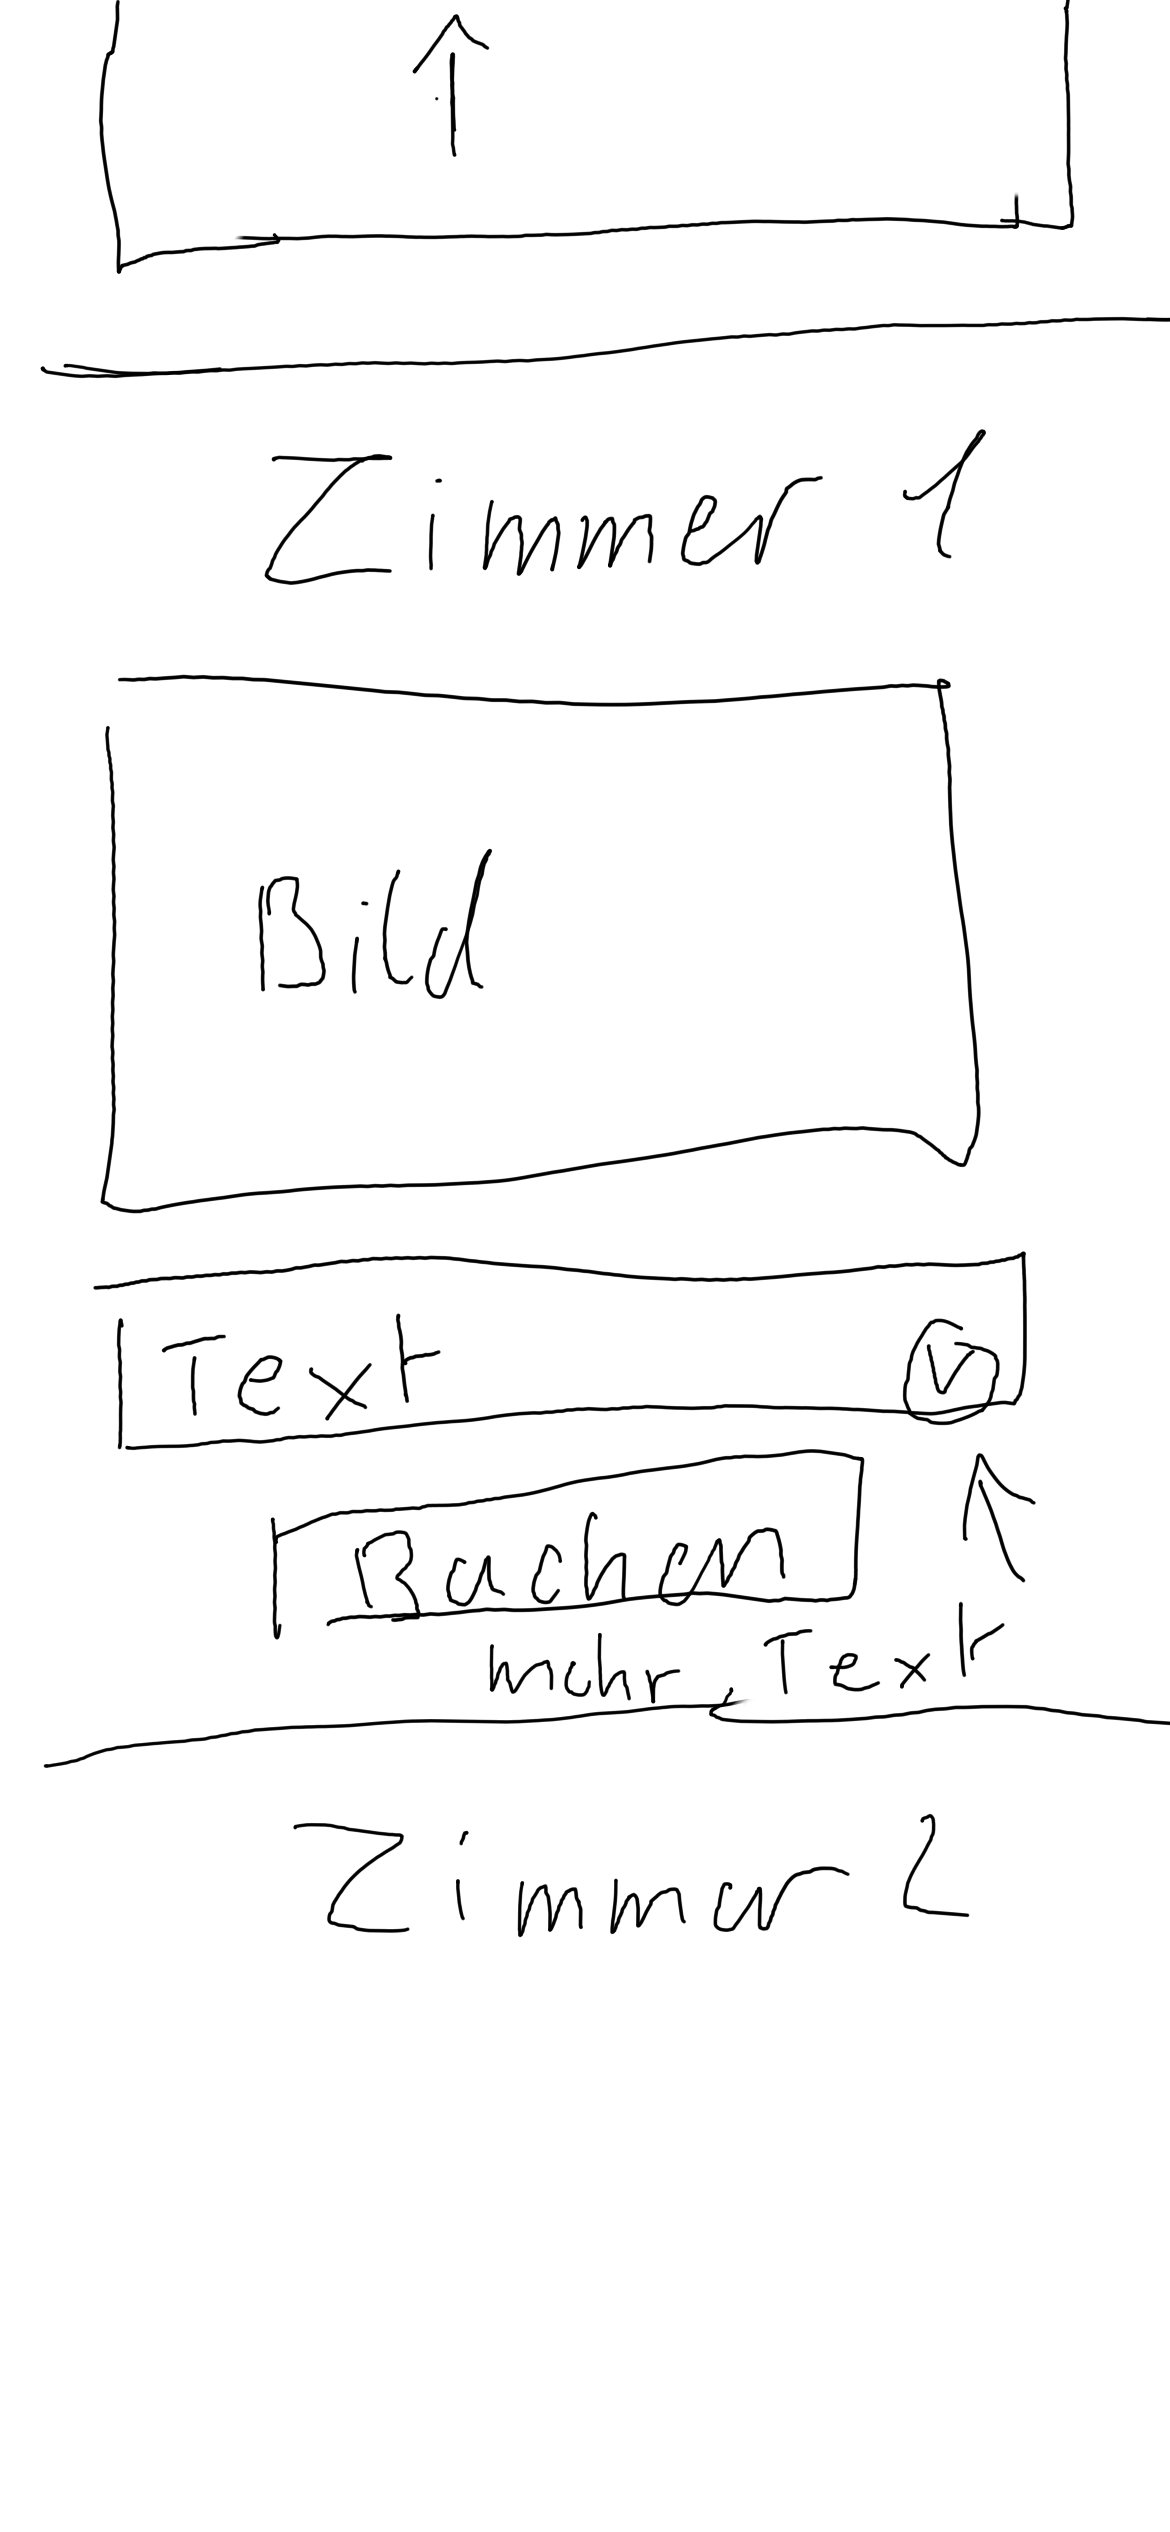 Zimmer 1
Bild
Text
Buchen
mehr Text
Zimmer 2